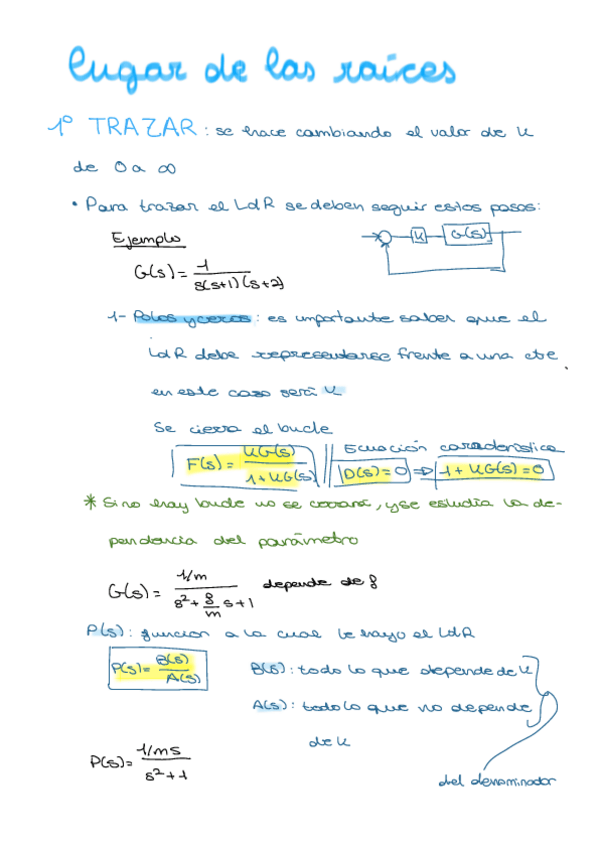 lugar de las raíces
1º TRAZAR: se hace cambiando el valor de K
de 0 a ∞
• Para trazar el LdR se deben seguir estos pasos:
Ejemplo
K G(s)
G(s) = 1 / s(s+1)(s+2)
1- Polos y ceros: es importante saber que el
LdR debe representarse frente a una cte
en este caso será K
Se cierra el bucle
F(s) = KG(s) / 1+KG(s) || Ecuación característica
D(s) = 0 ⇒ 1 + KG(s) = 0
* Si no hay bucle no se cerrará, y se estudia la de-
pendencia del parámetro
G(s) = 1/m / s² + 8/m s + 1 depende de 8
P(s): función a la cual le hayo el LdR
P(s) = B(s) / A(s) B(s): todo lo que depende de K
A(s): todo lo que no depende
de K
P(s) = 1/m s / s² + 1
del denominador